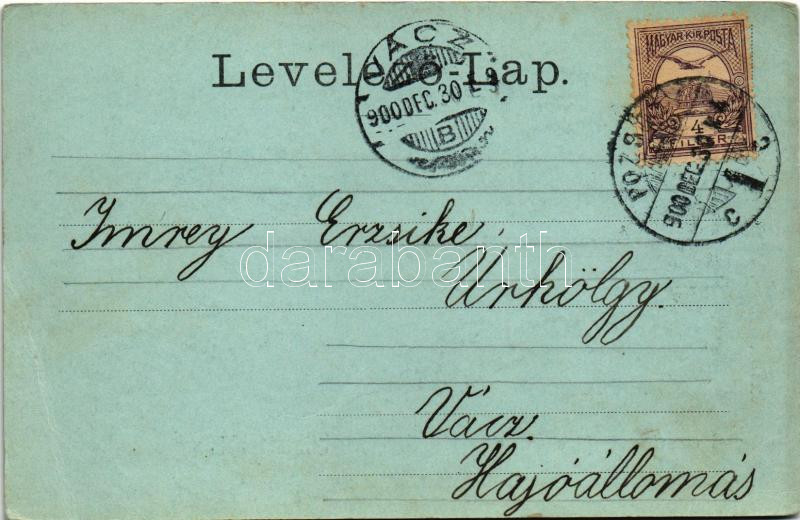 Levelező-Lap.
VÁCZ
900 DEC. 30
B
MAGYAR·KIR·POSTA
4
FILLÉR
POZSONY
900 DEC. 30
1
Imrey Erzsike
Urhölgy.
Vácz.
Hajóállomás
darabanth